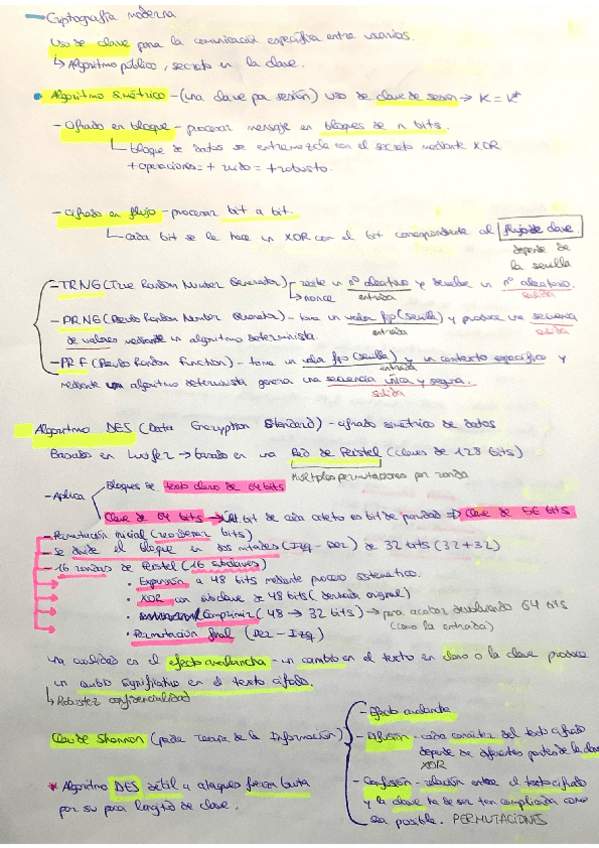 Criptografía moderna
Uso de clave para la comunicación específica entre usuarios.
↳ Algoritmo público, secreto en la clave.
Algoritmo Simétrico - (una clave por sesión) uso de clave de sesión → K = K*
- Cifrado en bloque - procesar mensaje en bloques de n bits.
bloque de datos se entremezcla con el secreto mediante XOR
+ operaciones = + ruido = + robusto.
- Cifrado en flujo - procesar bit a bit.
cada bit se le hace un XOR con el bit correspondiente al flujo de clave
depende de
la semilla
- TRNG (True Random Number Generator) - recibe un nº aleatorio y devuelve un nº aleatorio.
↳ nonce entrada salida
- PRNG (Pseudo Random Number Generator) - toma un valor fijo (semilla) y produce una secuencia
entrada salida
de valores mediante un algoritmo determinista.
- PRF (Pseudo Random Function) - toma un valor fijo (semilla) y un contexto específico y
entrada
mediante un algoritmo determinista genera una secuencia única y segura.
salida
Algoritmo DES (Data Encryption Standard) - cifrado simétrico de datos
Basados en Lucifer → basado en una Red de Feistel (claves de 128 bits)
Múltiples permutaciones por ronda
- Aplica
Bloques de texto claro de 64 bits
Clave de 64 bits → bit de cada octeto es bit de paridad ⇒ Clave de 56 bits
- Permutación inicial (reordenar bits)
- Se divide el bloque en dos mitades (Izq - Der) de 32 bits (32+32)
- 16 rondas de Feistel (16 subclaves)
• Expansión a 48 bits mediante proceso sistemático.
• XOR con subclave de 48 bits (derivada original)
• Comprimir (48 → 32 bits) → para acabar devolviendo 64 bits
(como la entrada)
• Permutación final (Der - Izq)
Una cualidad en el efecto avalancha - un cambio en el texto en claro o la clave produce
un cambio significativo en el texto cifrado.
↳ Robustez confidencialidad
Claude Shannon (padre Teoría de la Información)
- Efecto avalancha
- Difusión - cada carácter del texto cifrado
depende de diferentes partes de la clave
XOR
- Confusión - relación entre el texto cifrado
y la clave ha de ser tan complicada como
sea posible. PERMUTACIONES
* Algoritmo DES débil a ataques fuerza bruta
por su poca longitud de clave.